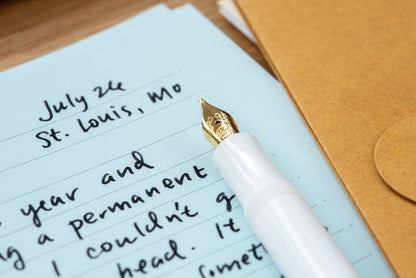 July 26
St. Louis, Mo
year and
a permanent
I couldn't g
head. It